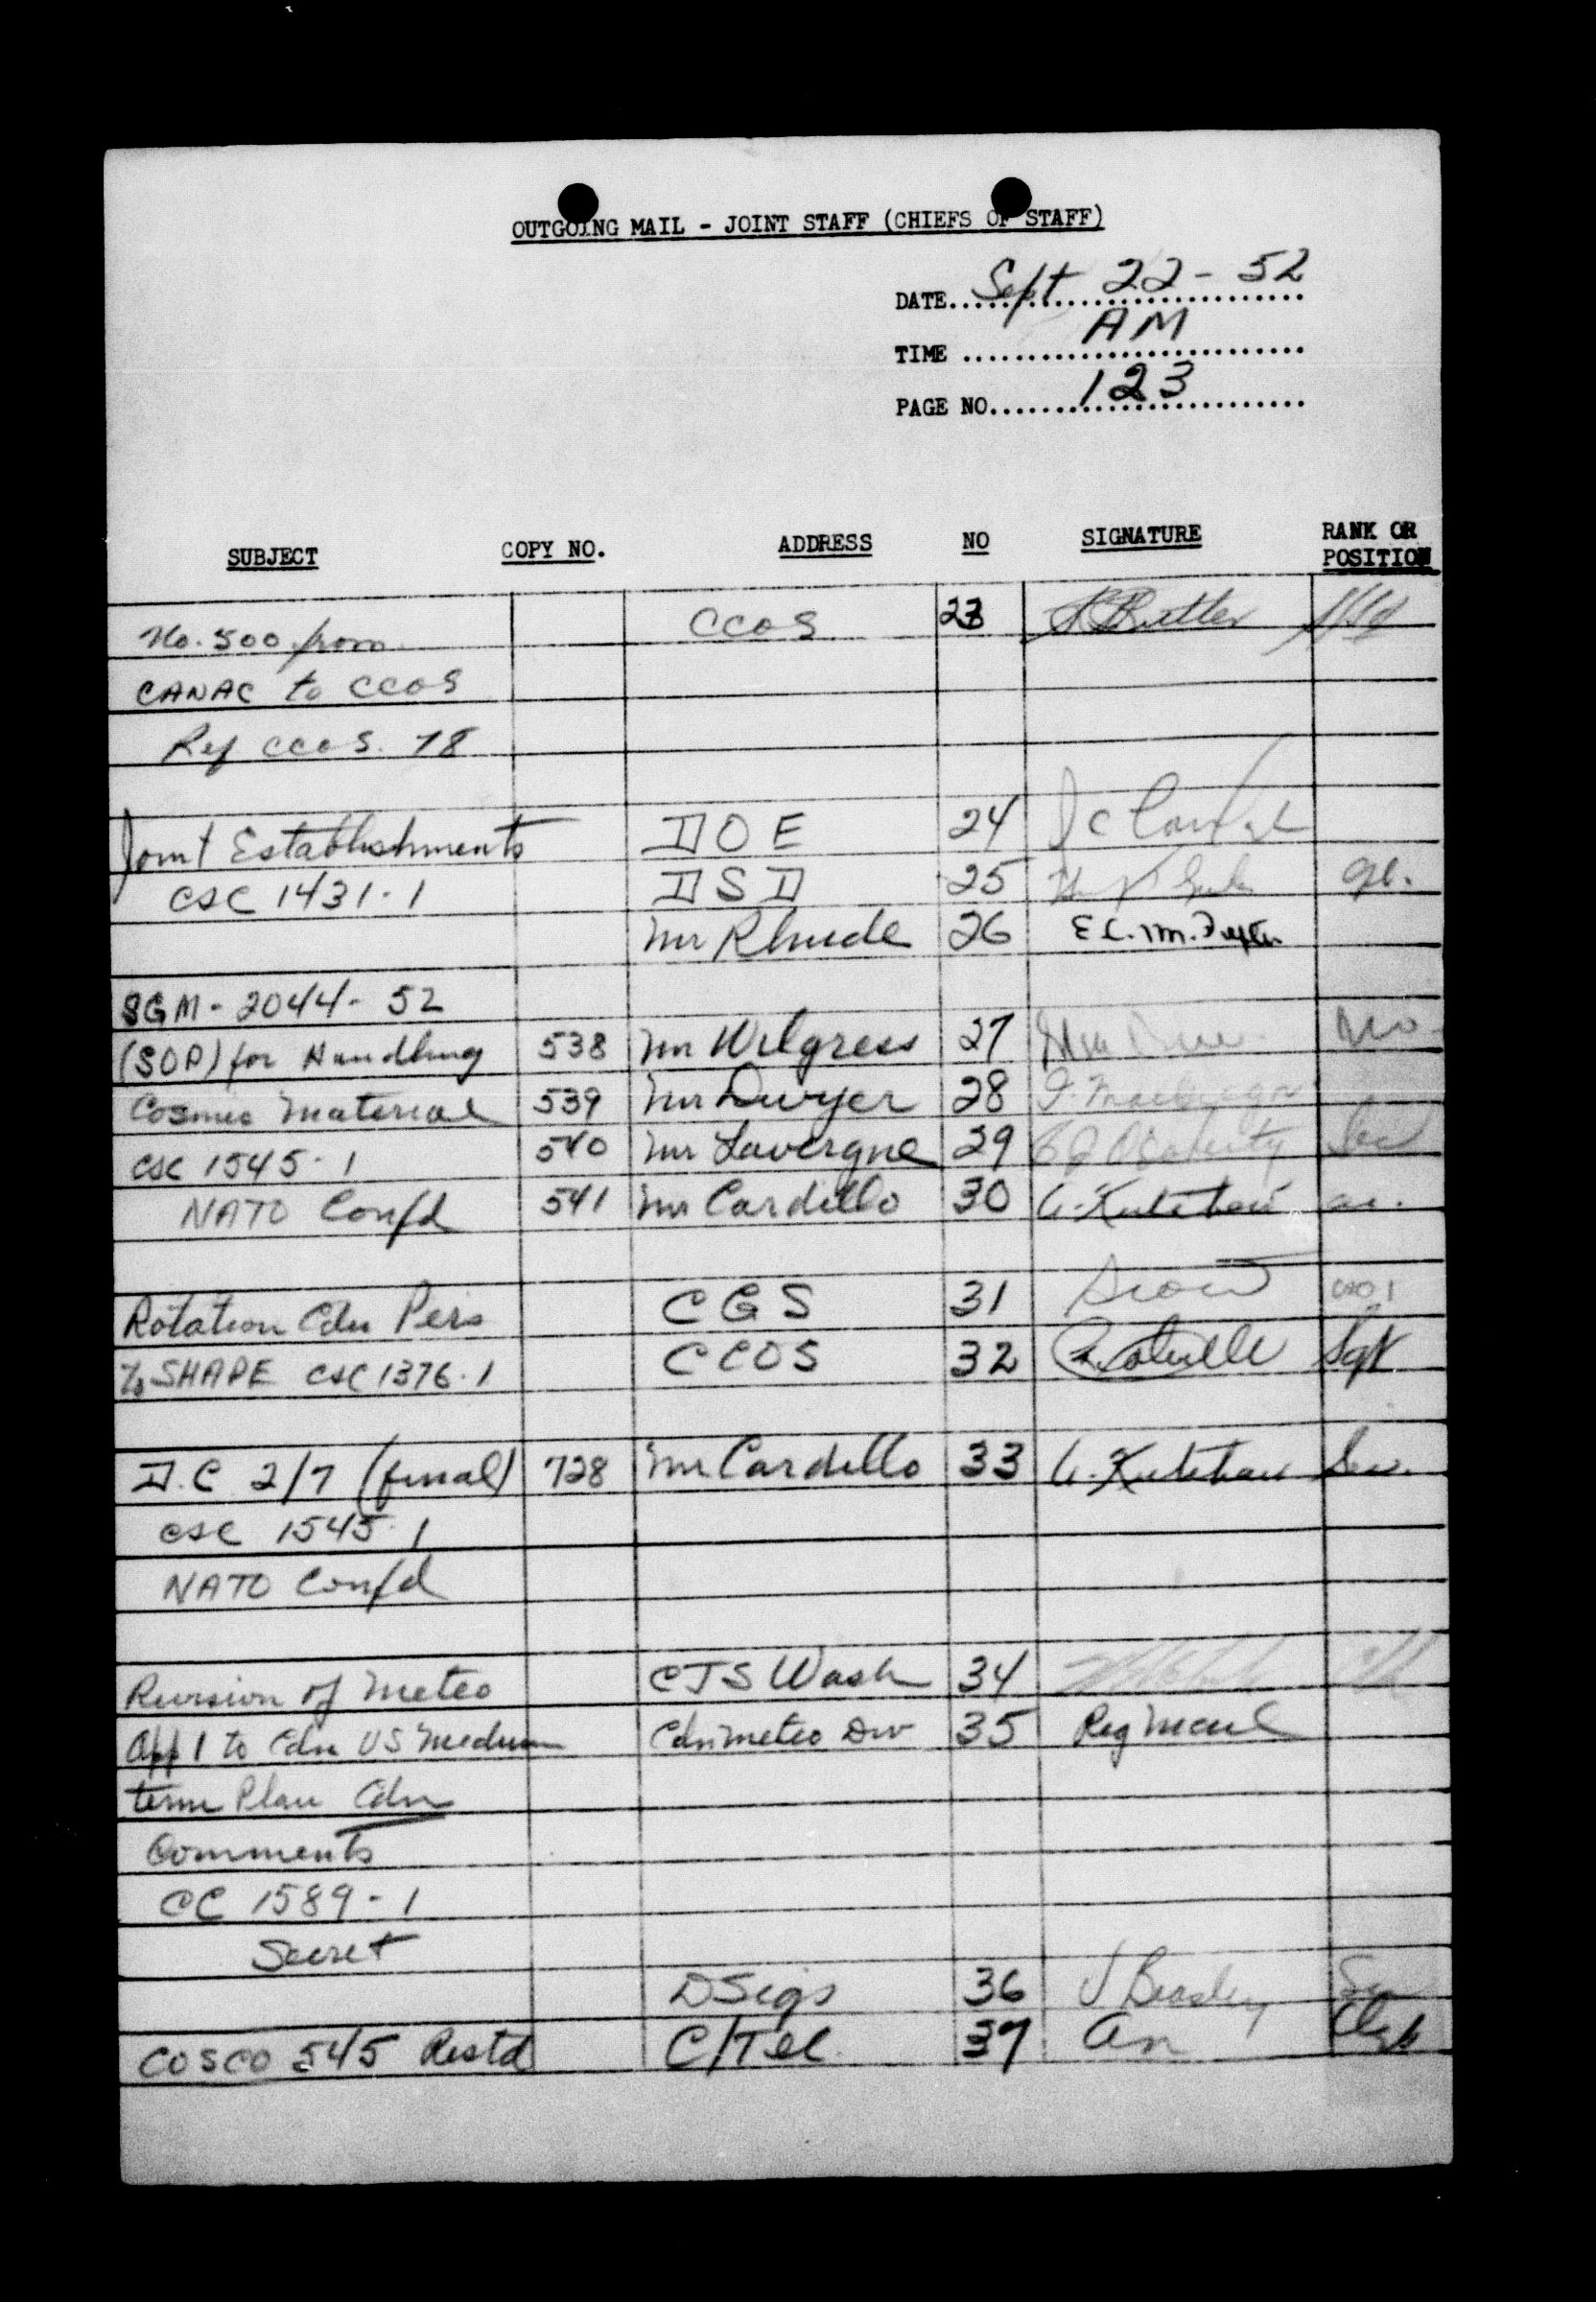 OUTGOING MAIL - JOINT STAFF (CHIEFS OF STAFF)
DATE Sept 22 - 52
TIME AM
PAGE NO. 123
SUBJECT COPY NO. ADDRESS NO SIGNATURE RANK OR POSITION
No. 500 from CCOS 23 Butler
CANAC to CCOS
Ref CCOS. 78
Joint Establishments DOE 24
CSC 1431-1 DSD 25
Mr Rhude 26 E.C.M.
SGM - 2044 - 52
(SOP) for Handling 538 Mr Wilgress 27
Cosmic Material 539 Mr Dwyer 28
CSC 1545-1 540 Mr Lavergne 29 Sec
NATO Confd 541 Mr Cardillo 30
Rotation Cdn Pers CGS 31
To SHAPE CSC 1376-1 CCOS 32 Sgt
D.C 2/7 (final) 728 Mr Cardillo 33 Sec.
CSC 1545-1
NATO Confd
Revision of Meteo CJS Wash 34
App 1 to Cdn US Medium Cdn Meteo Div 35 Reg Mail
term Plan Cdn
Comments
CC 1589-1
Secret
DSigs 36 J Beasley
COSCO 545 Restd C/Tel 37